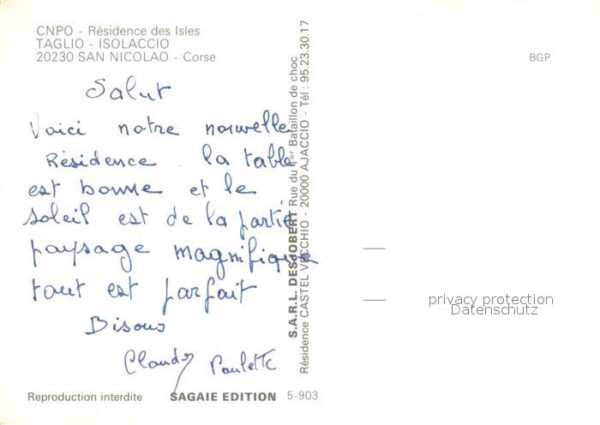 CNPO - Résidence des Isles
TAGLIO - ISOLACCIO
20230 SAN NICOLAO - Corse
BGP
Salut
Voici notre nouvelle
Résidence la table
est bonne et le
soleil est de la partie
paysage magnifique
tout est parfait
Bisous
Claude Paulette
S.A.R.L. DESJOBERT Rue du 1er Bataillon de choc
Résidence CASTEL VECCHIO - 20000 AJACCIO - Tél : 95.23.30.17
privacy protection
Datenschutz
Reproduction interdite SAGAIE EDITION 5-903